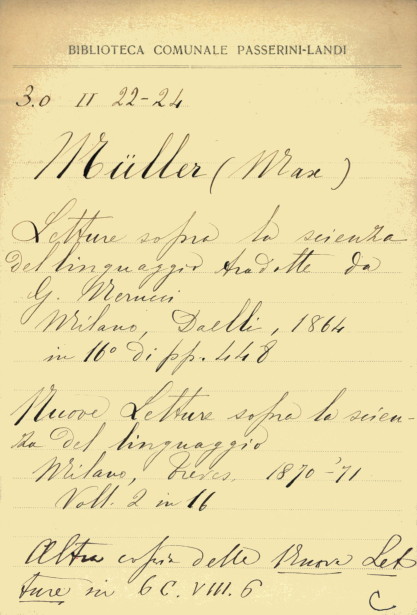 BIBLIOTECA COMUNALE PASSERINI-LANDI
3.0 II 22-24
Müller (Max)
Letture sopra la scienza
del linguaggio tradotte da
G. Nerucci
Milano, Daelli, 1864
in 16° di pp. 448
Nuove Letture sopra la scien-
za del linguaggio
Milano, Treves, 1870-71
Voll. 2 in 16
Altra copia delle Nuove Let-
ture in 6 C. VIII. 6
C